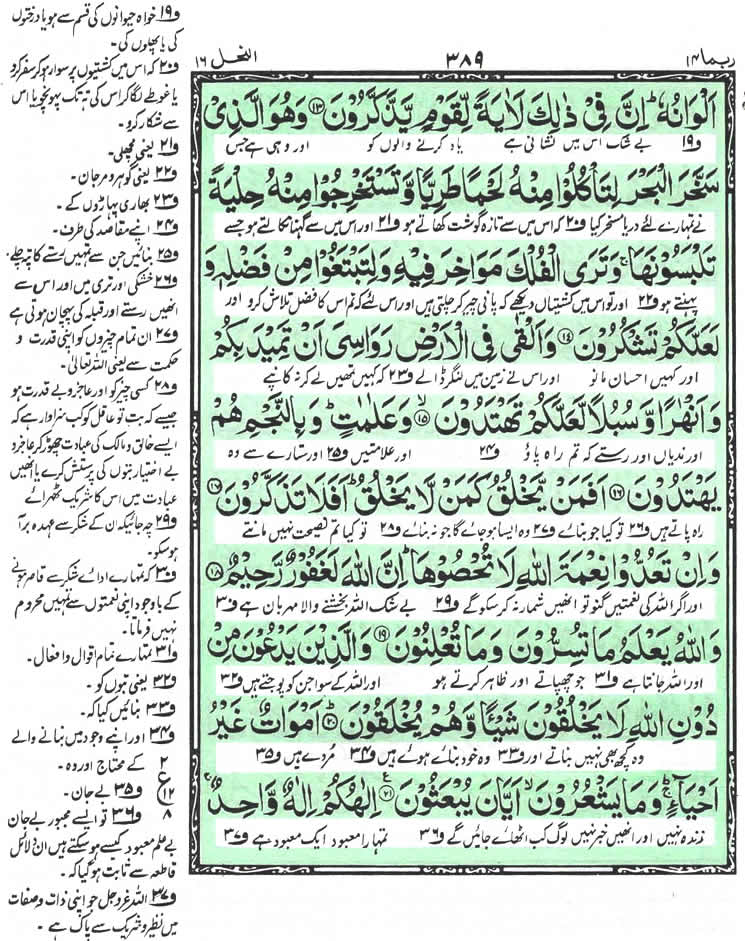 ربما ۱۴
۳۸۹
النحل ۱۶
اَلْوَانُهٗ ؕ اِنَّ فِیْ ذٰلِكَ لَاٰیَةً لِّقَوْمٍ یَّذَّكَّرُوْنَ ﴿۱۳﴾ وَ هُوَ الَّذِیْ
ف۱۹ بے شک اس میں نشانی ہے یاد کرنے والوں کو اور وہی ہے جس
سَخَّرَ الْبَحْرَ لِتَاْكُلُوْا مِنْهُ لَحْمًا طَرِیًّا وَّ تَسْتَخْرِجُوْا مِنْهُ حِلْیَةً
نے تمہارے لئے دریا مسخر کیا ف۲۰ کہ اس میں سے تازہ گوشت کھاتے ہو ف۲۱ اور اس میں سے گہنا نکالتے ہو جسے
تَلْبَسُوْنَهَا ۚ وَ تَرَی الْفُلْكَ مَوَاخِرَ فِیْهِ وَ لِتَبْتَغُوْا مِنْ فَضْلِهٖ وَ
پہنتے ہو ف۲۲ اور تو اس میں کشتیاں دیکھے کہ پانی چیر کر چلتی ہیں اور اس لئے کہ تم اس کا فضل تلاش کرو اور
لَعَلَّكُمْ تَشْكُرُوْنَ ﴿۱۴﴾ وَ اَلْقٰی فِی الْاَرْضِ رَوَاسِیَ اَنْ تَمِیْدَ بِكُمْ
اور کہیں احسان مانو اور اس نے زمین میں لنگر ڈالے ف۲۳ کہ کہیں تمھیں لے کر نہ کانپے
وَ اَنْهٰرًا وَّ سُبُلًا لَّعَلَّكُمْ تَهْتَدُوْنَ ﴿۱۵﴾ۙ وَ عَلٰمٰتٍ ؕ وَ بِالنَّجْمِ هُمْ
اور ندیاں اور رستے کہ تم راہ پاؤ ف۲۴ اور علامتیں ف۲۵ اور ستارے سے وہ
یَهْتَدُوْنَ ﴿۱۶﴾ اَفَمَنْ یَّخْلُقُ كَمَنْ لَّا یَخْلُقُ ؕ اَفَلَا تَذَكَّرُوْنَ ﴿۱۷﴾
راہ پاتے ہیں ف۲۶ تو کیا جو بنائے ف۲۷ وہ ایسا ہو جائے گا جو نہ بنائے ف۲۸ تو کیا تم نصیحت نہیں مانتے
وَ اِنْ تَعُدُّوْا نِعْمَةَ اللّٰهِ لَا تُحْصُوْهَا ؕ اِنَّ اللّٰهَ لَغَفُوْرٌ رَّحِیْمٌ ﴿۱۸﴾
اور اگر اللہ کی نعمتیں گنو تو انھیں شمار نہ کر سکو گے ف۲۹ بے شک اللہ بخشنے والا مہربان ہے ف۳۰
وَ اللّٰهُ یَعْلَمُ مَا تُسِرُّوْنَ وَ مَا تُعْلِنُوْنَ ﴿۱۹﴾ وَ الَّذِیْنَ یَدْعُوْنَ مِنْ
اور اللہ جانتا ہے ف۳۱ جو چھپاتے اور ظاہر کرتے ہو اور اللہ کے سوا جن کو پوجتے ہیں ف۳۲
دُوْنِ اللّٰهِ لَا یَخْلُقُوْنَ شَیْـًٔا وَّ هُمْ یُخْلَقُوْنَ ﴿۲۰﴾ؕ اَمْوَاتٌ غَیْرُ
وہ کچھ بھی نہیں بناتے اور ف۳۳ وہ خود بنائے ہوئے ہیں ف۳۴ مُردے ہیں ف۳۵
اَحْیَآءٍ ۚ وَ مَا یَشْعُرُوْنَ ۙ اَیَّانَ یُبْعَثُوْنَ ﴿۲۱﴾ اِلٰهُكُمْ اِلٰهٌ وَّاحِدٌ ۚ
زندہ نہیں اور انھیں خبر نہیں لوگ کب اٹھائے جائیں گے ف۳۶ تمہارا معبود ایک معبود ہے ف۳۷
ف۱۹ خواہ حیوانوں کی قسم سے ہو یا درختوں
کی یا پھلوں کی۔
ف۲۰ کہ اس میں کشتیوں پر سوار ہو کر سفر کرو
یا غوطے لگا کر اس کی تہ تک پہونچو یا اس
سے شکار کرو۔
ف۲۱ یعنی مچھلی۔
ف۲۲ یعنی گوہر و مرجان۔
ف۲۳ بھاری پہاڑوں کے۔
ف۲۴ اپنے مقاصد کی طرف۔
ف۲۵ بنائیں جن سے تمہیں رستے کا پتہ چلے۔
ف۲۶ خشکی اور تری میں اور اس سے
انھیں رستے اور قبلہ کی پہچان ہوتی ہے
ف۲۷ ان تمام چیزوں کو اپنی قدرت و
حکمت سے یعنی اللہ تعالیٰ۔
ف۲۸ کسی چیز کو اور عاجز و بے قدرت ہو
جیسے کہ بت تو عاقل کو کب سزاوار ہے کہ
ایسے خالق و مالک کی عبادت چھوڑ کر عاجز و
بے اختیار بتوں کی پرستش کرے یا انھیں
عبادت میں اس کا شریک ٹھہرائے
ف۲۹ چہ جائیکہ ان کے شکر سے عہدہ برآ
ہو سکو۔
ف۳۰ کہ تمہارے ادائے شکر سے قاصر ہونے
کے باوجود اپنی نعمتوں سے تمہیں محروم
نہیں فرماتا۔
ف۳۱ تمہارے تمام اقوال و افعال۔
ف۳۲ یعنی بتوں کو۔
ف۳۳ بنائیں کیا کہ۔
ف۳۴ اور اپنے وجود میں بنانے والے
۲ کے محتاج اور وہ۔
ع ۱۲ ف۳۵ بے جان۔
۸ ف۳۶ تو ایسے مجبور بے جان
بے علم معبود کیسے ہو سکتے ہیں ان دلائل
قاطعہ سے ثابت ہو گیا کہ۔
ف۳۷ اللہ عزوجل جو اپنی ذات و صفات
میں نظیر و شریک سے پاک ہے۔